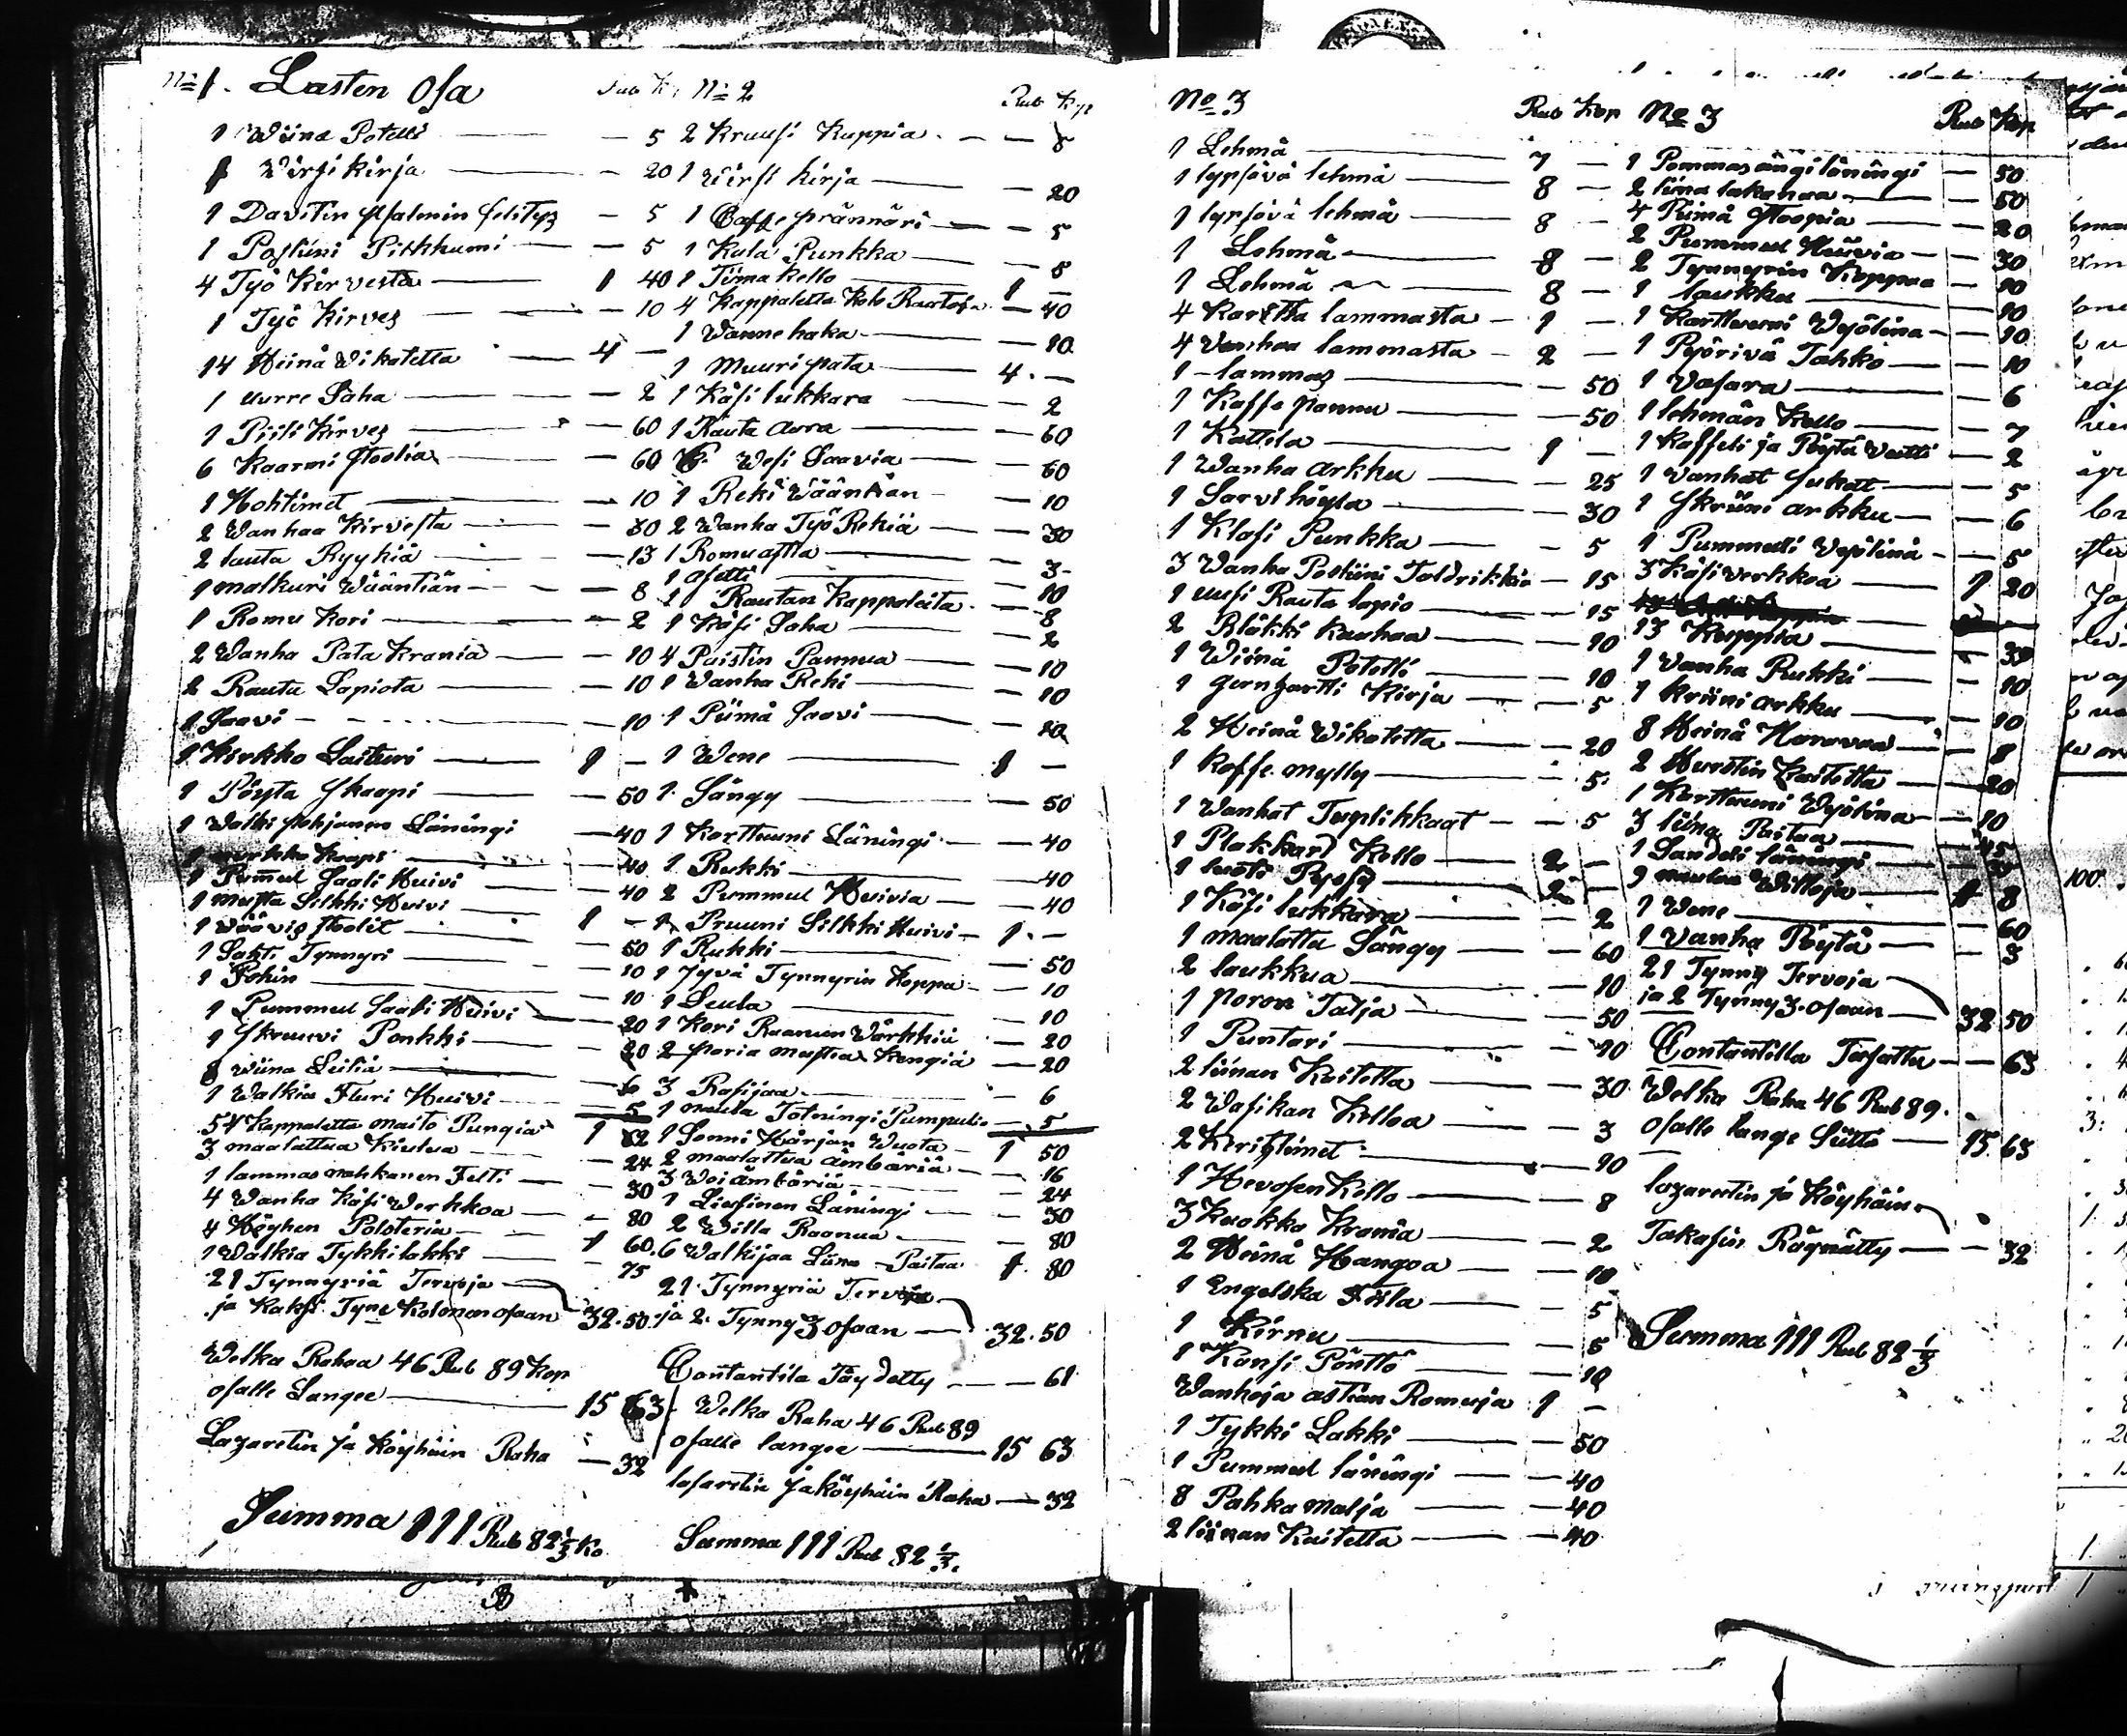 No 1. Lasten Osa Rub K:
1 Wiina Potelli — 5
1 Wirsikirja — 20
1 Davitin psalmin selitys — 5
1 Posliini Pikkkumi — 5
4 Työ Kirvestä 1 40
1 Työ Kirves — 10
14 Heinä Wikatetta 4 —
1 uurre Saha — 2
1 Piili Kirves — 60
6 Kaarmi stoolia — 60
1 Hohtimet — 10
2 Wanhaa Kirvesta — 30
2 lauta Ryyhiä — 13
1 malkuri Wääntiän — 8
1 Romu Kori — 2
2 Wanha Pata Krania — 10
2 Rauta Lapiota — 10
1 Saavi — 10
1 Kirkko Laituri 1 —
1 Pöyta Skaapi — 50
1 Walki pohjanen Läningi — 40
1 Kaapi — 40
1 Pum̄ul Saali Huivi — 40
1 musta Silkki Huivi 1 —
1 väävis stoolit — 50
1 Sahti Tynnyri — 10
1 Pohin — 10
1 Pummul Saali Huivi — 20
1 Skruuvi Penkki — 20
8 wiina Leiliä — 6
1 Walkia Fluri Huivi — 5
54 Kappaletta maito Pungia 1 62
3 maalattua Kiulua — 24
1 lammasnahkanen Felti — 30
4 Wanha Käsi Werkkoa — 80
4 Höyhen Polsteria 1 60
1 Walkia Tykki lakki — 75
21 Tynnyriä Tervoja
ja Kaksi Tyne Kolonen osaan 32.50
Welka Rahaa 46 Rub 89 Kop
osalle Langee 15 63
Lazaretin ja Köyhäin Raha — 32
Summa 111 Rub 82⅓ Ko
No 2 Rub Kop
2 Kruusi Kuppia — 5
1 Wirsi kirja — 20
1 Caffe prännäri — 5
1 Kala Punkka — 5
1 Tiima kello 1 —
4 Kappaletta Koto Rautoja — 40
1 Wanne haka — 10
1 Muuri pata 4. —
1 Käsi lukkara — 2
1 Rauta Aura — 60
6 Wesi Saavia — 60
1 Reki Wääntiän — 10
2 Wanha Työ Rekiä — 30
1 Romu astia — 3
1 asetti — 10
1 Rautan Kappaleita — 8
1 Käsi Saha — 2
4 Paistin Pannua — 10
1 Wanha Reki — 10
1 Piimä Saavi — 10
1 Wene 1 —
1 Sängy — 50
1 Karttuuni Läningi — 40
1 Rukki — 40
2 Pummul Huivia — 40
1 Pruuni Silkki Huivi 1. —
1 Rukki — 50
1 Jyvä Tynnyrin Koppa — 10
1 Seula — 10
1 Kori Raanun Wärkkiä — 20
2 paria mustia Kengiä — 20
3 Rasijaa — 6
1 naula Totningi Pumpulia — 5
1 Sonni Härjan Wuota 1 50
2 maalattua ämbäriä — 16
3 Woi ämbäriä — 24
1 Läningi — 30
2 Willa Raanua — 80
6 Walkijaa Liina Paitaa 1. 80
21 Tynnyriä Tervoja
ja 2. Tynny 3 osaan — 32.50
Contantila Täydetty — 61
Welka Raha 46 Rub 89
osalle langee 15 63
lasaretin ja köyhäin Raha — 32
Summa 111 Rub 82⅓.
No 3 Rub Kop
1 Lehmä 7 —
1 lypsävä lehmä 8 —
1 lypsävä lehmä 8
1 Lehmä 8 —
1 Lehmä 8 —
4 Karitta lammasta 1 —
4 Vanhaa lammasta 2 —
1 lammas — 50
1 Kaffe pannu — 50
1 Kattila 1 —
1 Wanha arkku — 25
1 Sarvihöyla — 30
1 Klasi Punkka — 5
3 Wanha Posliini Taldrikkia — 15
1 uusi Rauta lapio — 15
2 Bläkki kauhaa — 10
1 Wiinä Potelli — 10
1 Gernhartti Kirja — 5
2 Heinä Wikatetta — 20
1 Kaffe mylly — 5
1 Wanhat Tuplikkaat — 5
1 Plakkari Kello 2 —
1 luoti Pyssy 2 —
1 Käsi lukkara — 2
1 maalattu Sängy — 60
2 laukkua — 10
1 Poron Talja — 50
1 Puntari — 10
2 liinan Kaitetta — 30
2 Wasikan Kelloa — 3
2 Keritzimet — 10
1 Hevosen Kello — 8
3 Kuokka Krania — 2
2 Heinä Hangoa — 10
1 Engelska Fiila — 5
1 Kirnu — 5
1 Kansi Pönttö — 10
Wanhoja astian Romuja 1 —
1 Tykki Lakki — 50
1 Pummul läningi — 40
8 Pahka malja — 40
2 liinan Kaitetta — 40
No 3 Rub Kop
1 läningi — 50
2 liina lakanaa — 50
4 Piimä stoopia — 20
2 Pummul Huivia — 30
2 Tynnyrin Koppaa — 10
1 laukku — 10
1 Karttuuni Wyölina — 10
1 Pyörivä Tahko — 10
1 Vasara — 6
1 lehmän Kello — 7
1 Kaffeli ja Pöytä Veitti — 2
1 Vanhat sukat — 5
1 Skriini arkku — 6
1 Pummuli Wyölinä — 5
3 Käsi verkkoa 1 20
13 Kuppia — 39
1 Vanha Rukki — 10
1 Kriini arkku — 10
8 Heinä Haravaa — 8
2 Hurstin Kaitetta — 20
1 Karttuuni Wyölina — 10
3 liina Paitaa — 45
1 läningi
9 naulaa Willoja 1 8
1 Wene — 60
1 Vanha Pöytä — 3
21 Tynny Tervoja
ja 2 Tynny 3. osaan 32 50
Contantilla Tasattu — 63
Welka Raha 46 Rub 89.
osalle lange Siitte 15. 63
lazaretin ja Köyhäin
Takasin Räynätty — 32
Summa 111 Rub 82⅓